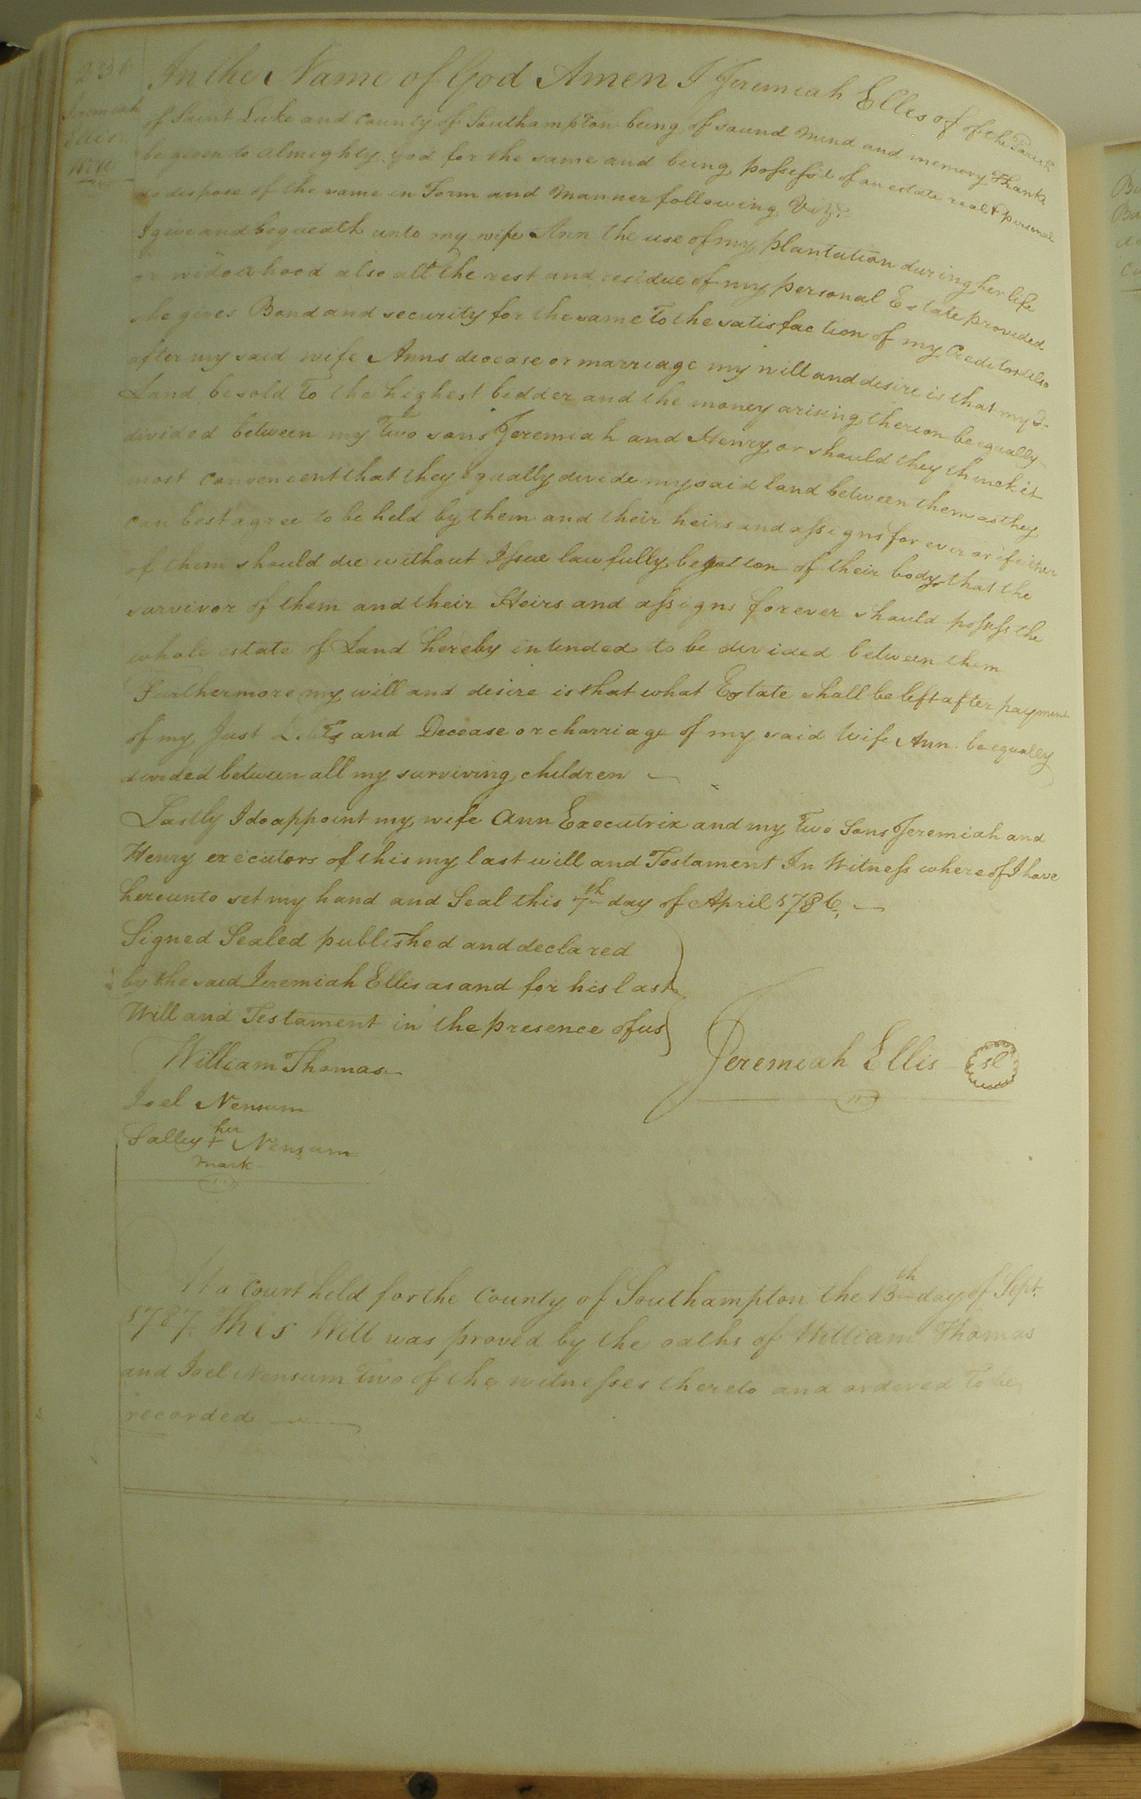 Jeremiah
Will
In the Name of God Amen I Jeremiah Elles of of the Parish
of Saint Luke and County of Southampton being of sound mind and memory thanks
be given to almighty God for the same and being possess'd of an estate real & personal
do dispose of the same in Form and Manner following Viz.
I give and bequeath unto my wife Ann the use of my plantation during her life
or widowhood also all the rest and residue of my personal Estate provided
she gives Bond and security for the same To the satisfaction of my Creditors also
after my said wife Anns decease or marriage my will and desire is that my
Land be sold To the highest bidder and the money arising thereon be equally
divided between my Two sons Jeremiah and Henry or should they think it
most convenient that they equally divide my said land between them as they
can best agree to be held by them and their heirs and assigns for ever or if either
of them should die without Issue lawfully begotton of their body that the
survivor of them and their Heirs and assigns forever should possess the
whole estate of Land hereby intended to be divided between them
Furthermore my will and desire is that what Estate shall be left after payment
of my Just Debts and Decease or charriage of my said Wife Ann be equally
divided between all my surviving children
Lastly I do appoint my wife Ann Executrix and my Two Sons Jeremiah and
Henry executors of this my last will and Testament In Witness whereof I have
hereunto set my hand and Seal this 7th day of April 1786.
Signed Sealed published and declared
by the said Jeremiah Ellis as and for his last
Will and Testament in the presence of us
William Thomas
Jeremiah Ellis sl
Joel Nensum
Salley her + Nensum
mark
At a Court held for the County of Southampton the 13th day of Sept.
1787. This Will was proved by the oaths of William Thomas
and Joel Nensum Two of the witnesses thereto and ordered To be
recorded